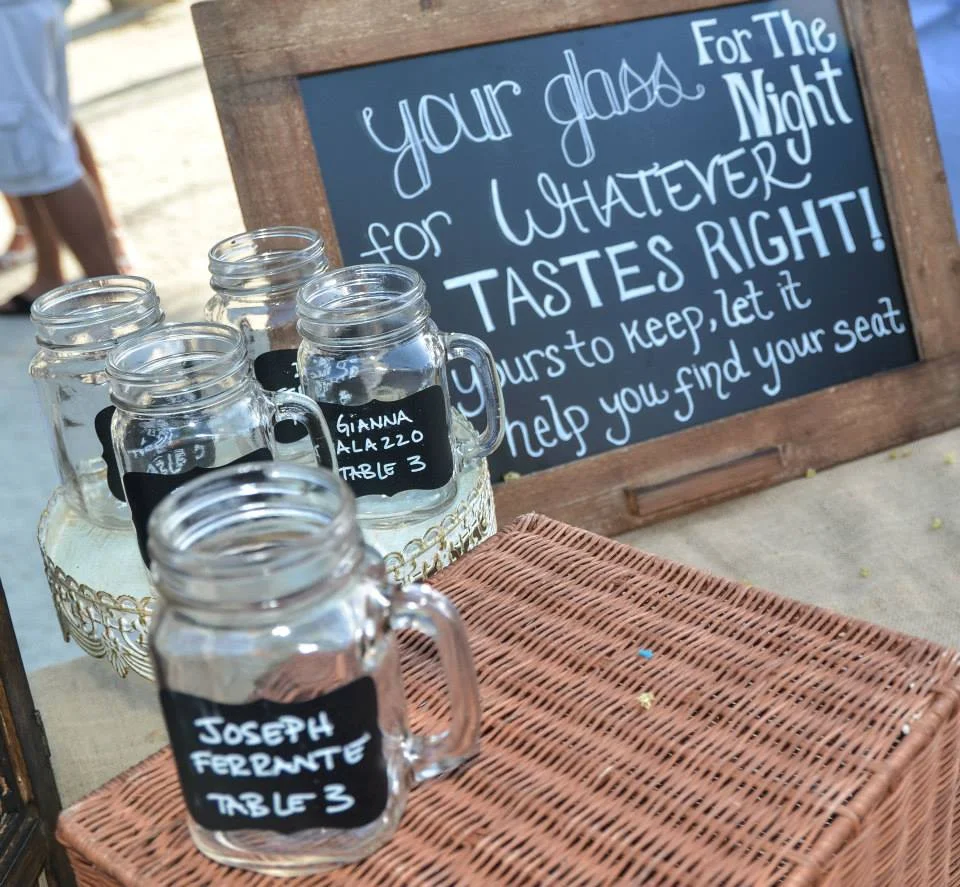 your glass For The
Night
for WHATEVER
TASTES RIGHT!
yours to keep, let it
help you find your seat
GIANNA
ALAZZO
TABLE 3
JOSEPH
FERRANTE
TABLE 3